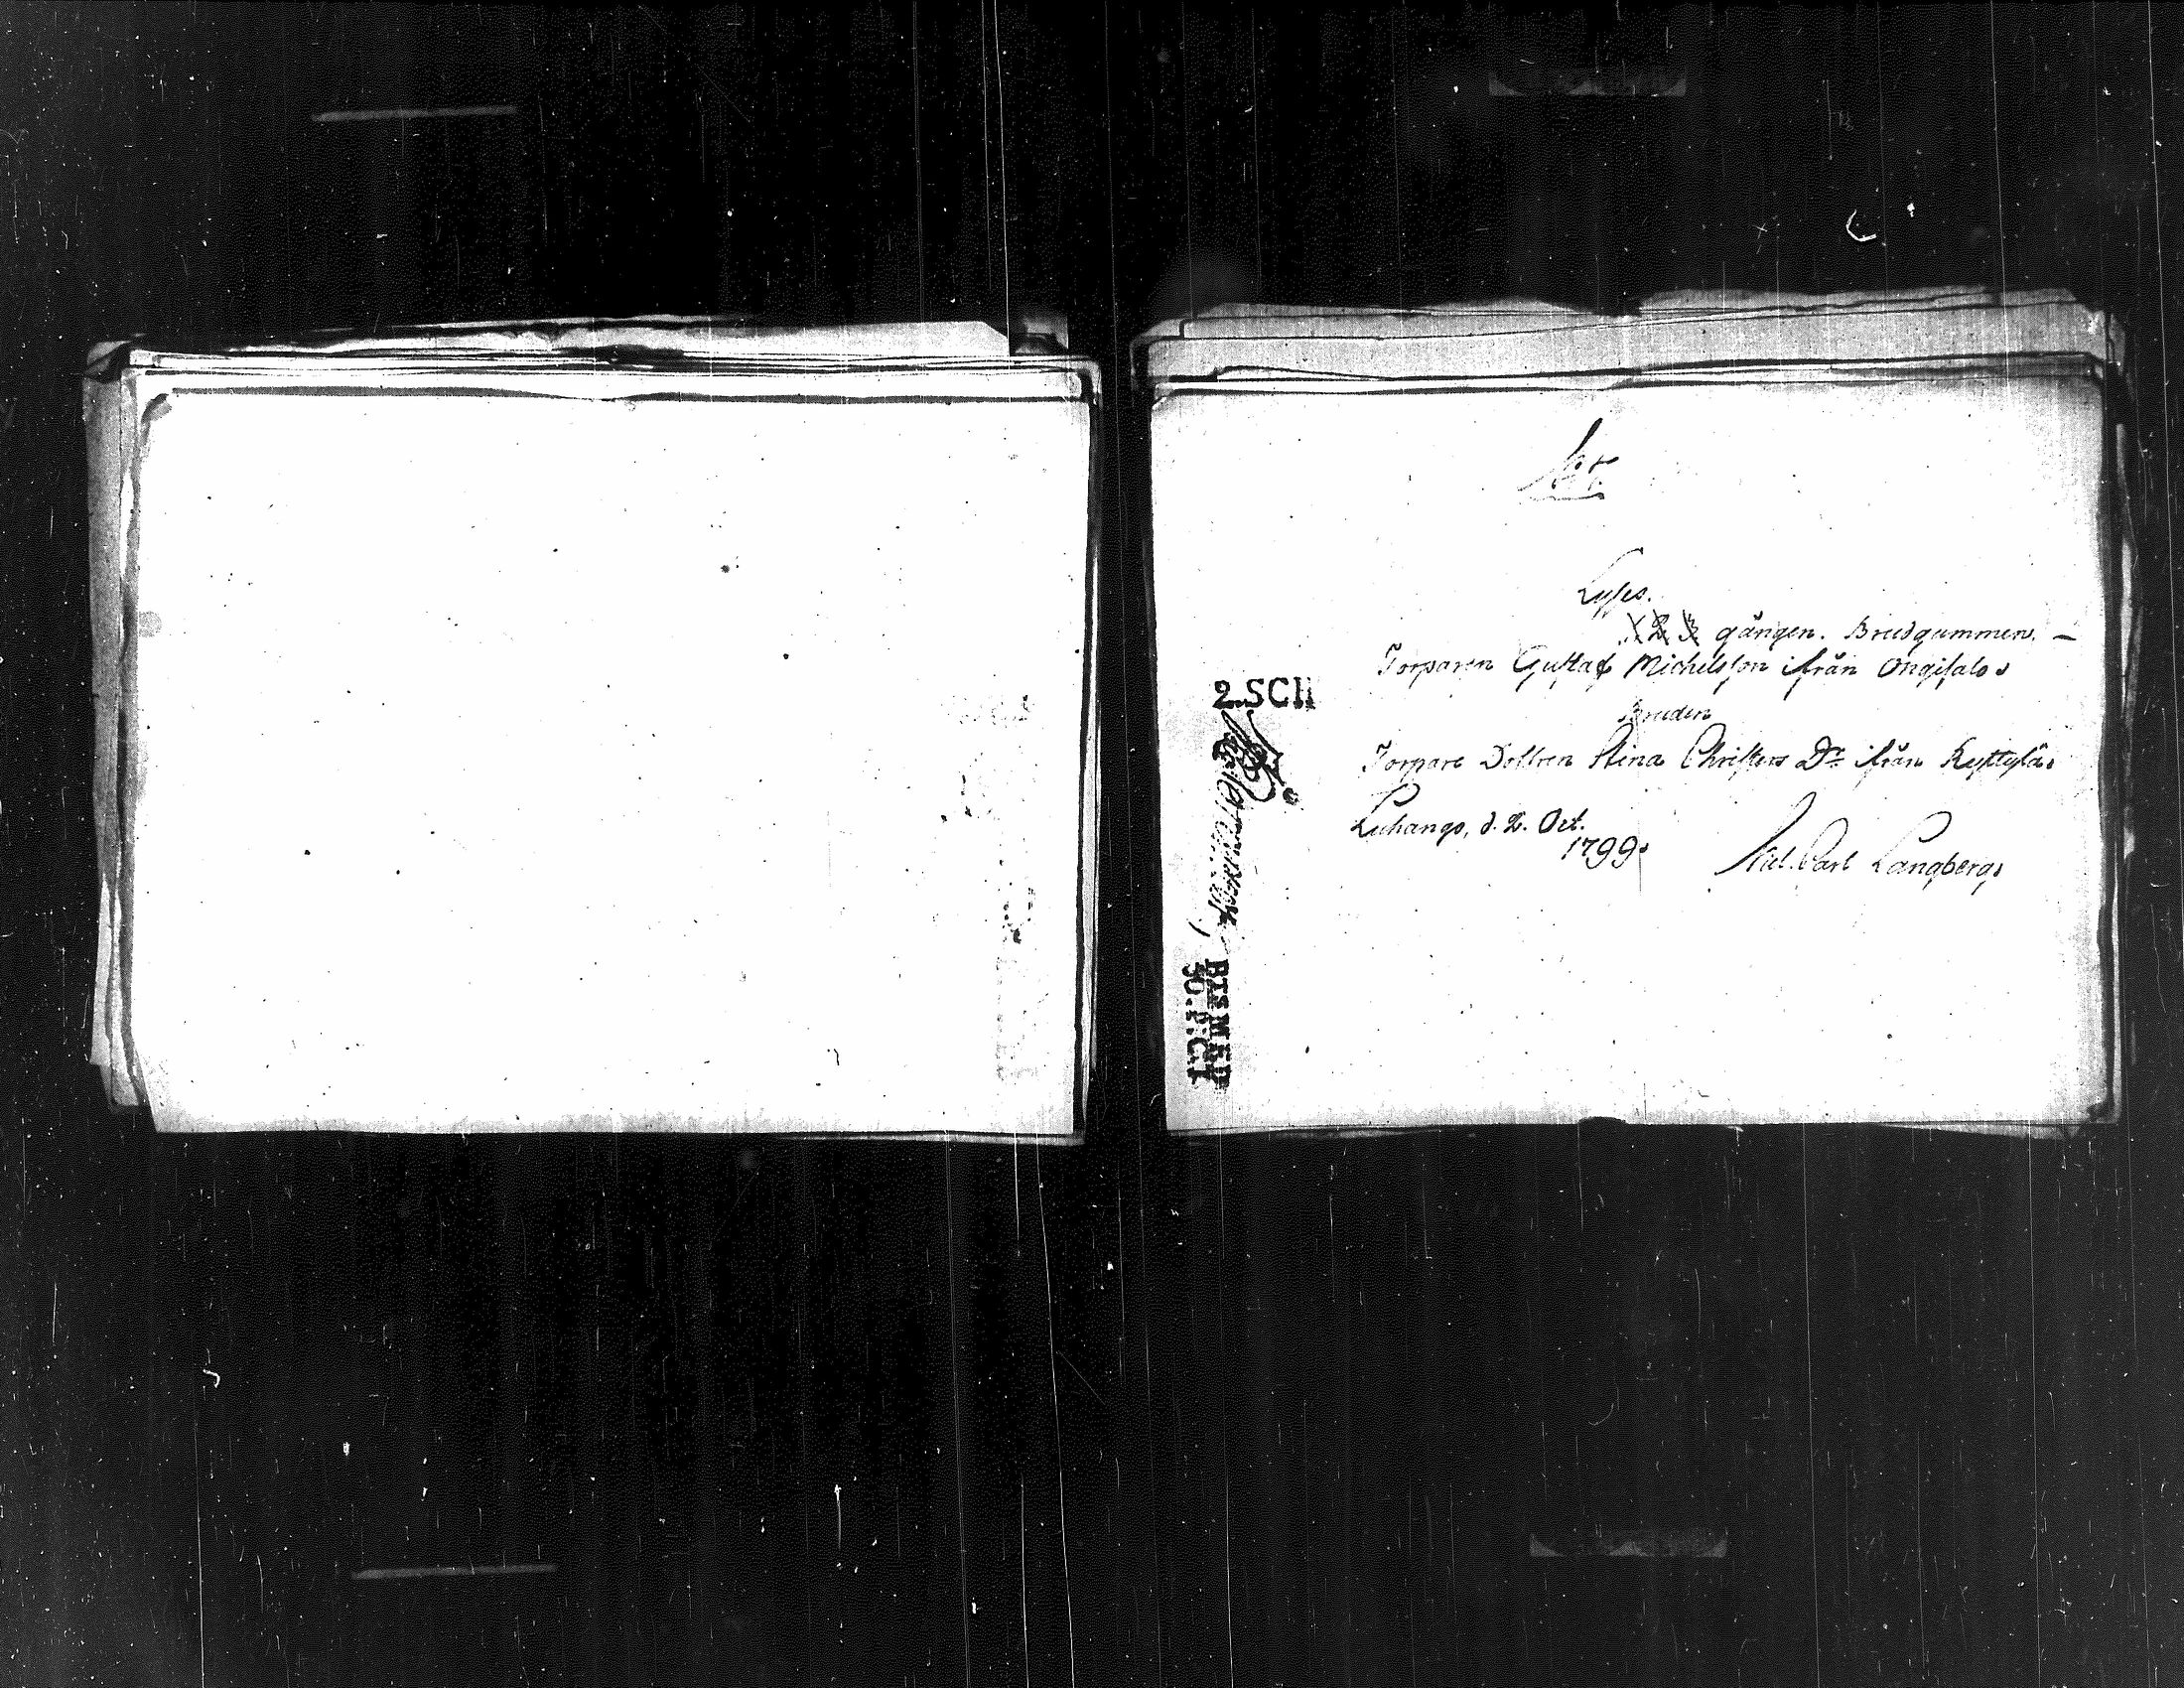 Lyses.
1 2 3 gången. Brudgummen. –
Torparen Gustaf Michelsson ifrån Ongisalo.
Bruden
Torpare Dottren Stina Christers Dr ifrån Kyttylä.
Luhango, d. 2. Oct.
1799.
Nic. Carl Langberg.
2.SCH